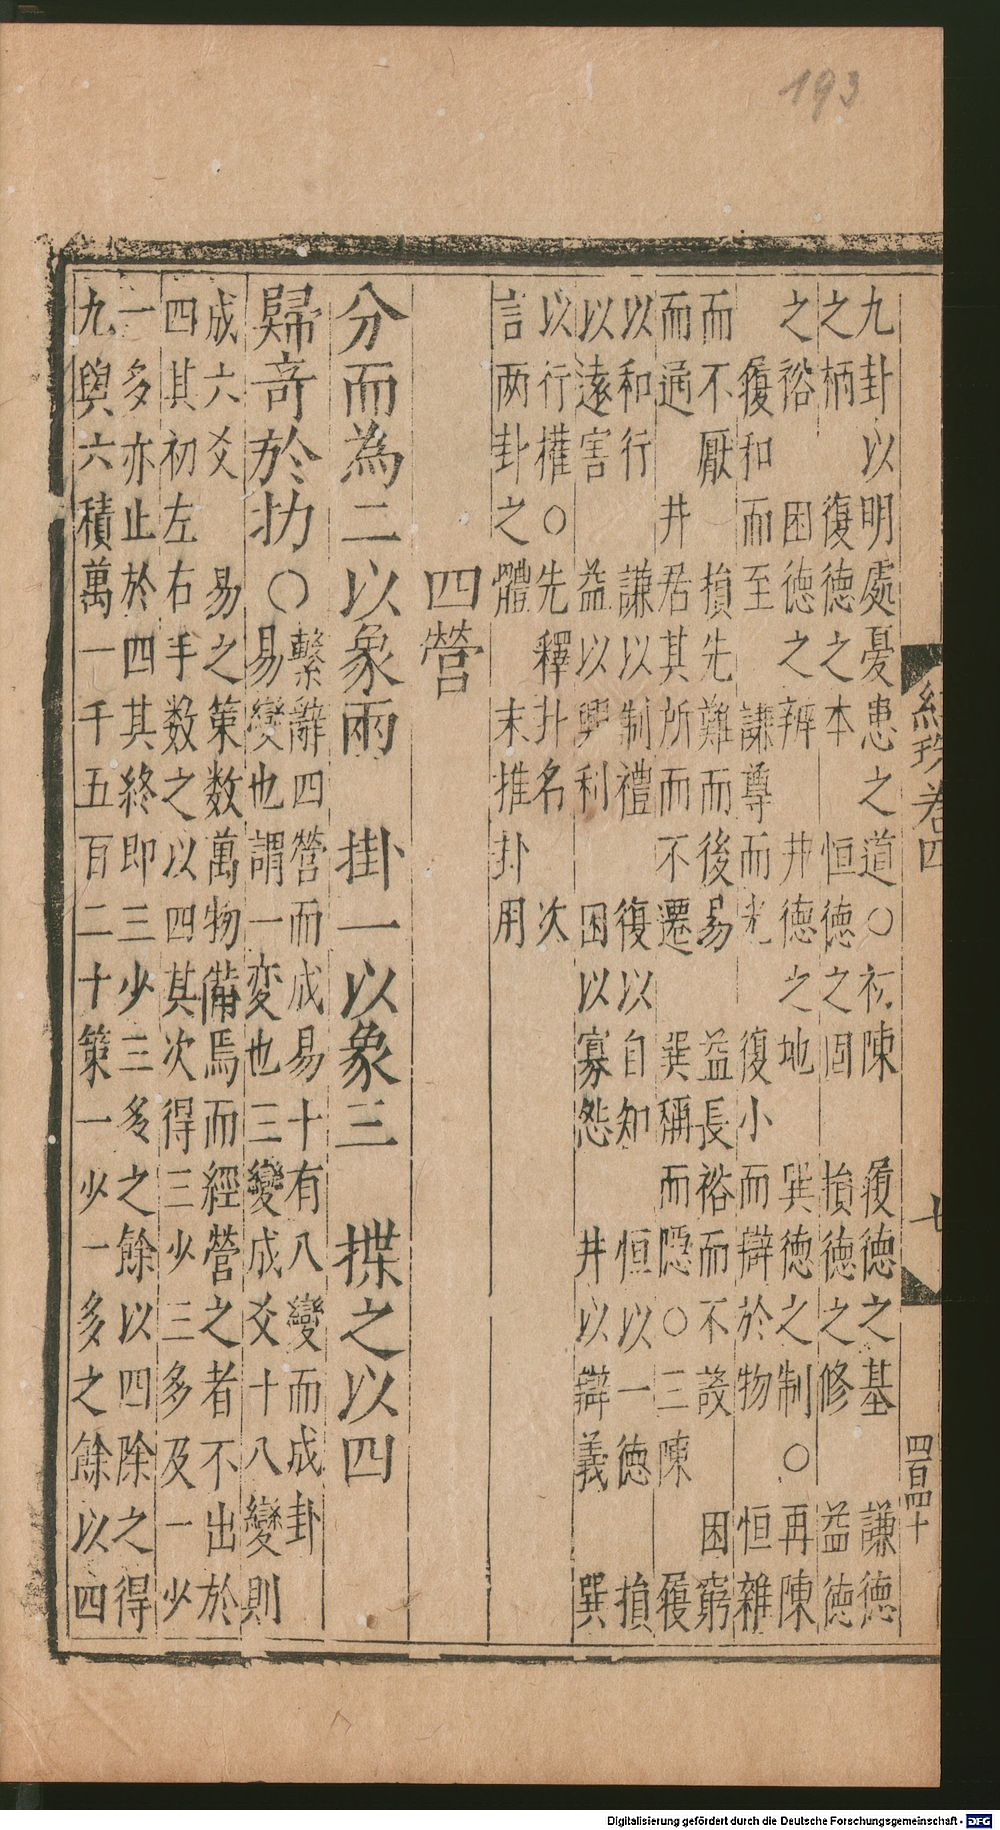 193
經玩卷四 七 四百四十
九卦以明處憂患之道○初陳 履德之基 謙德
之柄 復德之本 恒德之固 損德之修 益德
之裕 困德之辨 井德之地 巽德之制○再陳
履和而至 謙尊而光 復小而辯於物 恒雜
而不厭 損先難而後易 益長裕而不設 困窮
而通 井居其所而不遷 巽稱而隱○三陳 履
以和行 謙以制禮 復以自知 恒以一德 損
以遠害 益以興利 困以寡怨 井以辯義 巽
以行權○先釋卦名 次
言两卦之體 末推卦用
四營
分而為二以象兩 掛一以象三 揲之以四
歸奇於扐○
繫辭四營而成易十有八變而成卦
易變也謂一変也三變成爻十八變則
成六爻 易之策数萬物備焉而經營之者不出於
四其初左右手数之以四其次得三少三多及一少
一多亦止於四其終即三少三多之餘以四除之得
九與六積萬一千五百二十策一少一多之餘以四
Digitalisierung gefördert durch die Deutsche Forschungsgemeinschaft - DFG